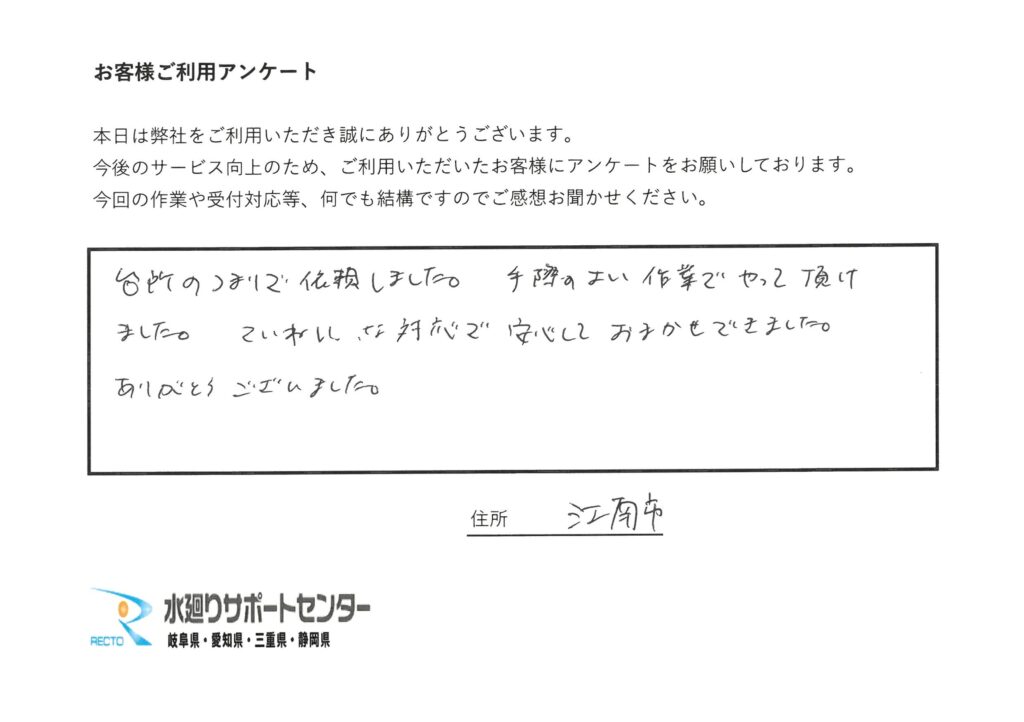 お客様ご利用アンケート
本日は弊社をご利用いただき誠にありがとうございます。
今後のサービス向上のため、ご利用いただいたお客様にアンケートをお願いしております。
今回の作業や受付対応等、何でも結構ですのでご感想お聞かせください。
台所のつまりで依頼しました。 手際のよい作業でやって頂け
ました。 ていねいな対応で安心しておまかせできました。
ありがとうございました。
住所 江南市
RECTO 水廻りサポートセンター
岐阜県・愛知県・三重県・静岡県